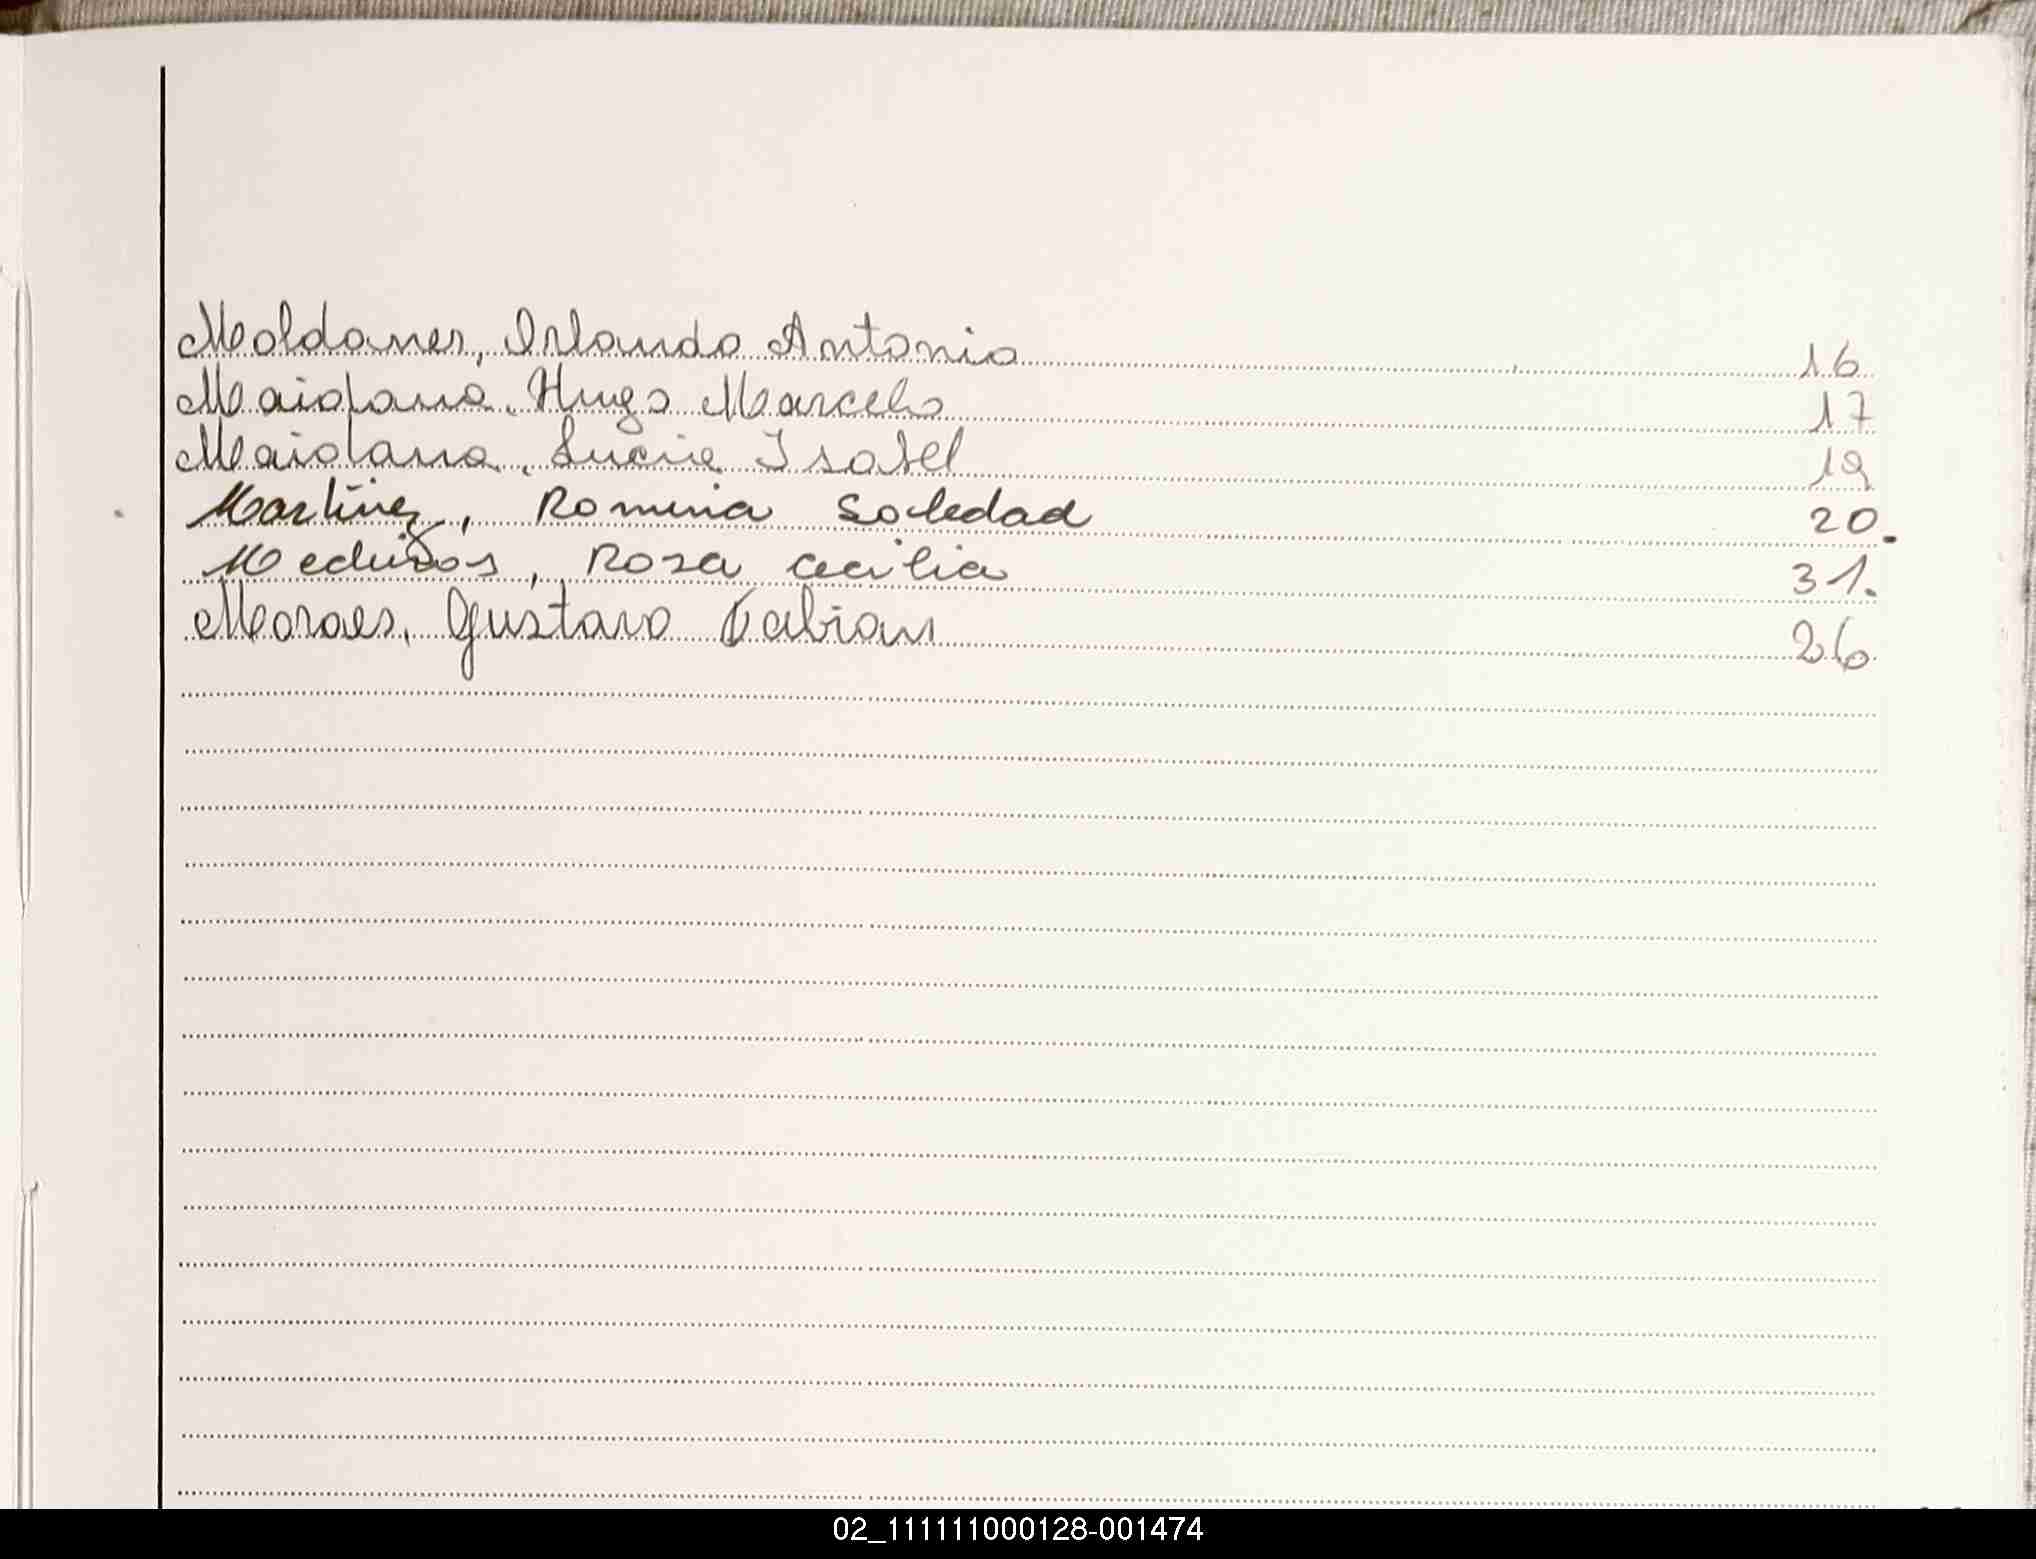 Moldaner, Orlando Antonio 16
Maidana, Hugo Marcelo 17
Maidana, Lucia Isabel 19
Martínez, Romina Soledad 20.
Rosa Cecilia 31.
Moraes, Gustavo Fabian 26
02_111111000128-001474